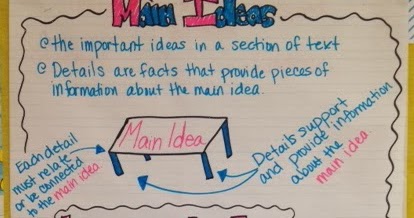 Main Ideas
the important ideas in a section of text
Details are facts that provide pieces of
information about the main idea.
Main Idea
Each detail
must relate
or be connected
to the main idea
Details support
and provide information
about the
main idea